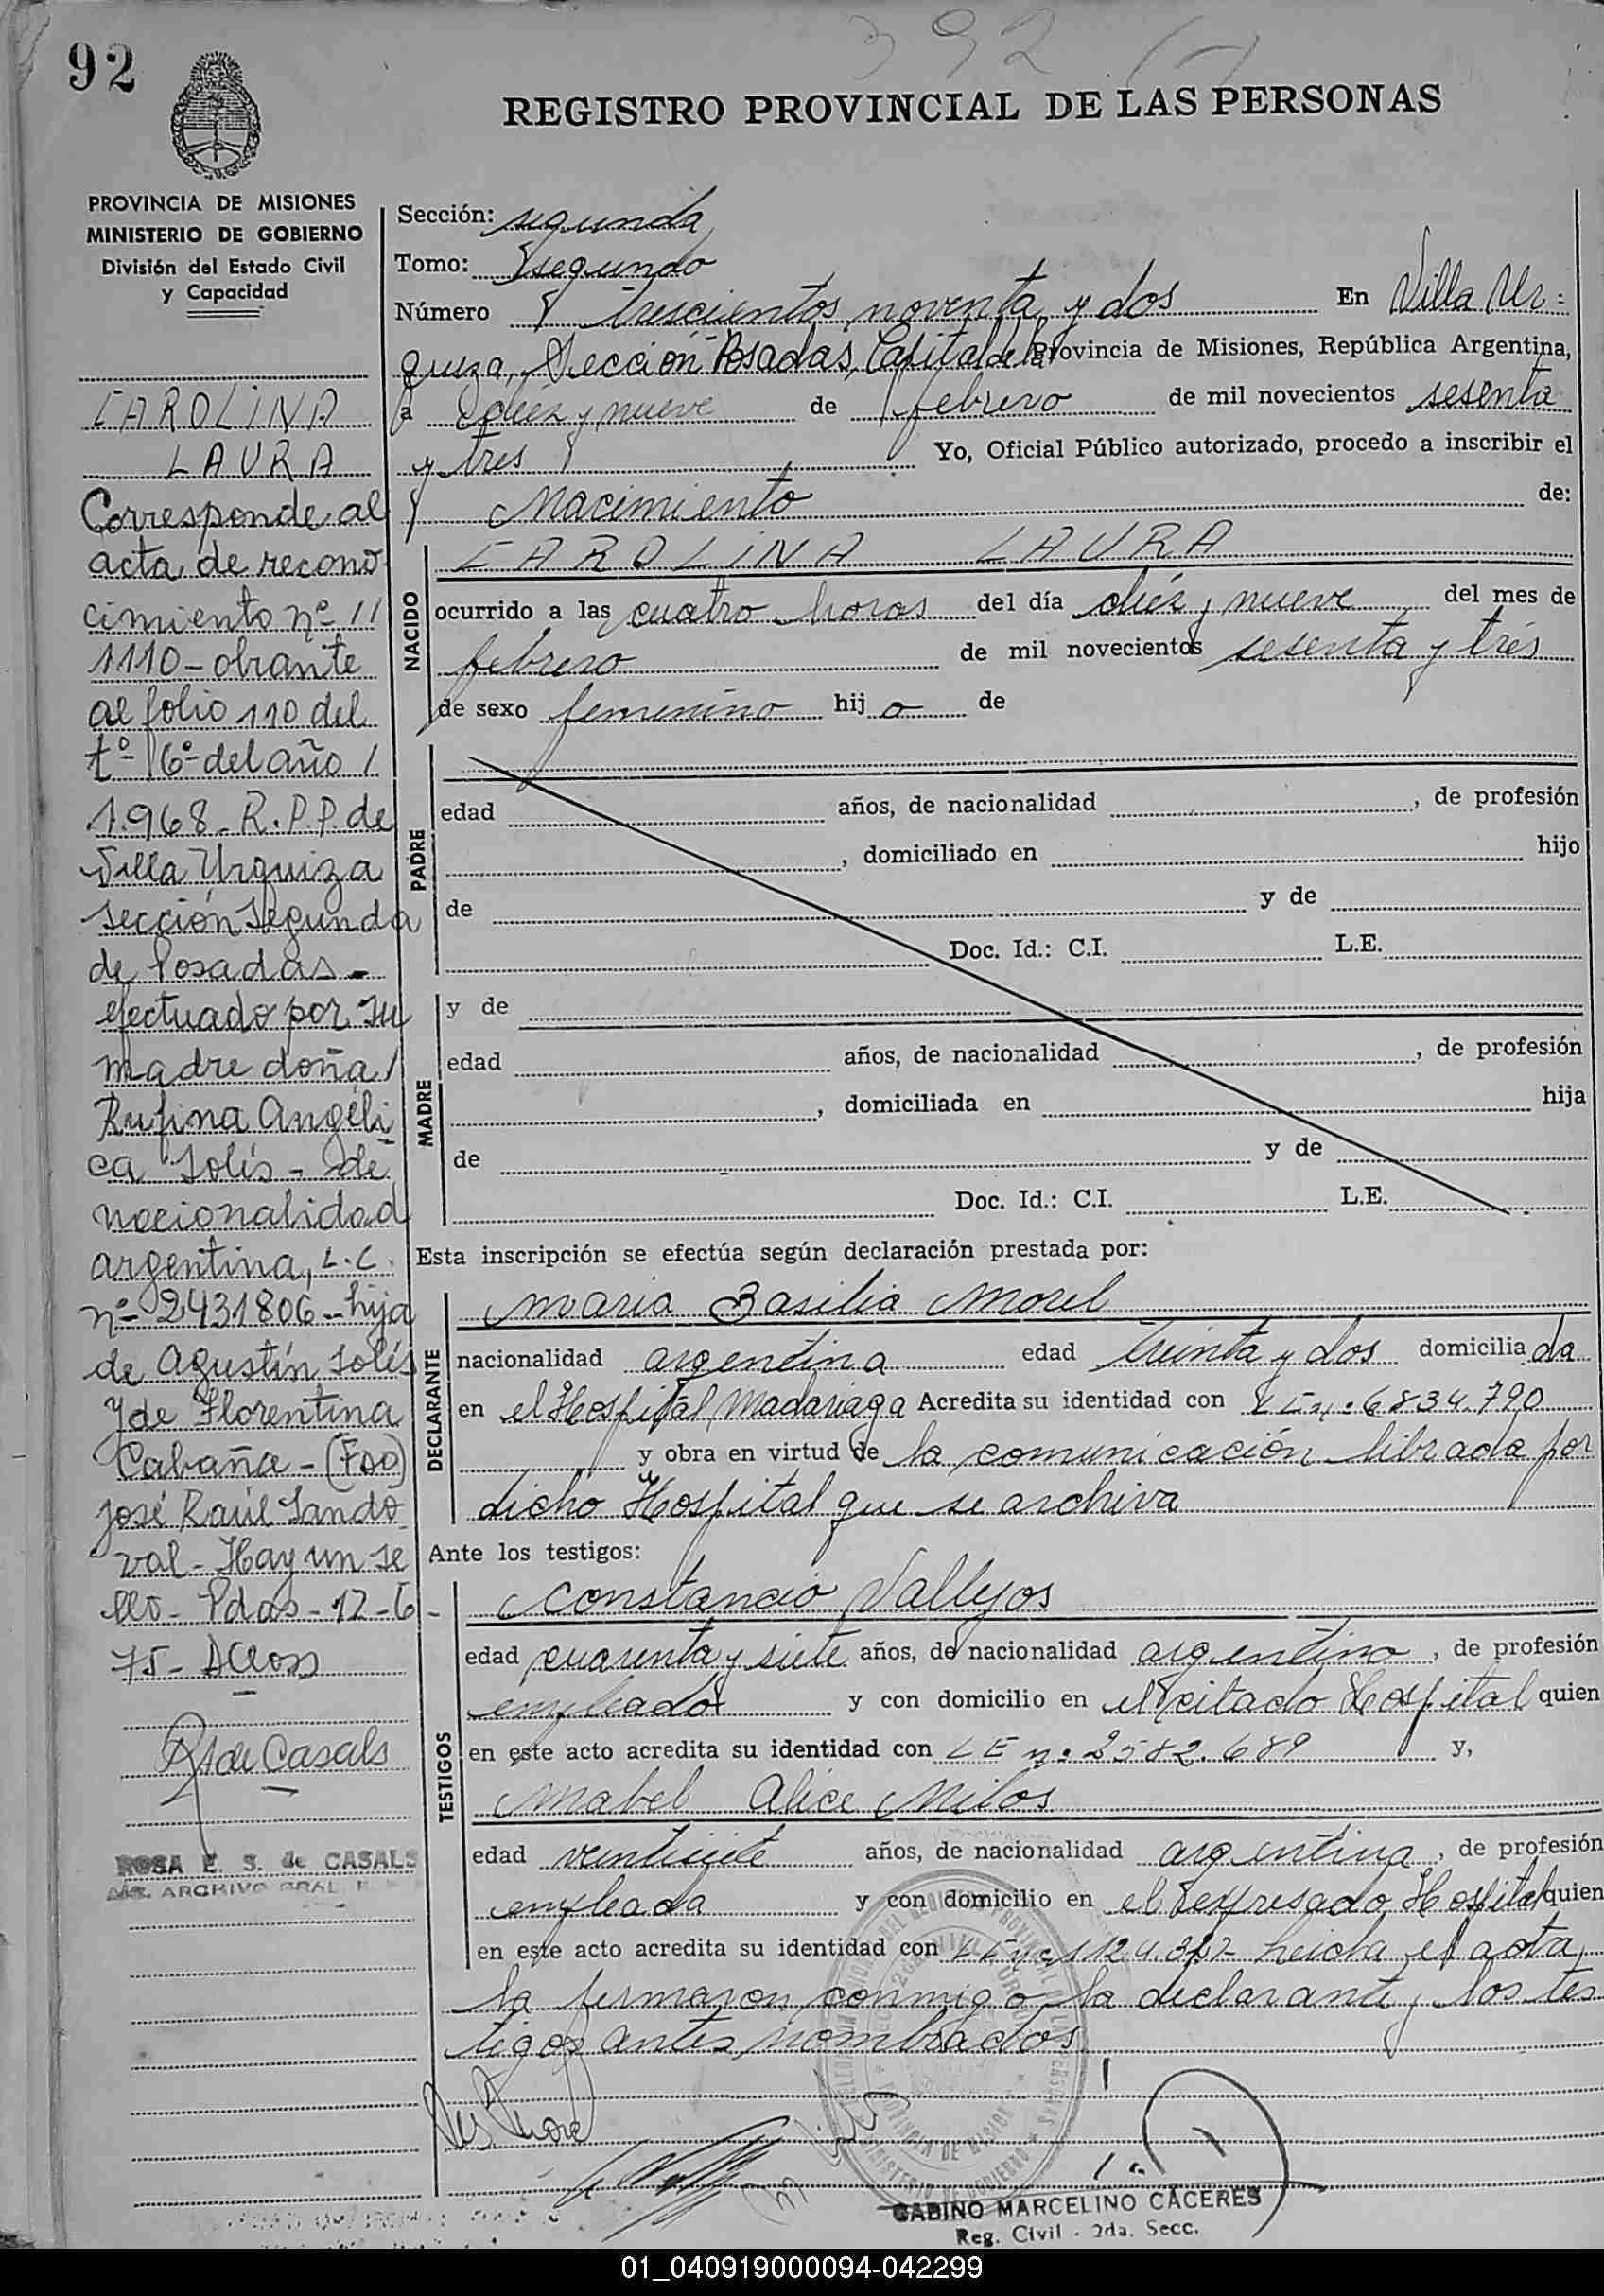 92
392 (-)
REGISTRO PROVINCIAL DE LAS PERSONAS
PROVINCIA DE MISIONES
MINISTERIO DE GOBIERNO
División del Estado Civil
y Capacidad
CAROLINA
LAURA
Corresponde al
acta de recono
cimiento nº //
1110 - obrante
al folio 110 del
tº 6º del año /
1.968 - R.P.P. de
Villa Urquiza
sección segunda
de Posadas -
efectuado por su
madre doña /
Rufina Angéli
ca Solís - de
nacionalidad
argentina, L.C.
nº 2431806 - hija
de Agustín Solís
y de Florentina
Cabaña - (Fdo)
José Raúl Sando
val - Hay un se
llo - Pdas - 12-6-
75 -
de Casals
ROSA E. S. de CASALS
ARCHIVO GRAL.
Sección: segunda
Tomo: segundo
Número trescientos noventa y dos En Villa Ur=
quiza, Sección Posadas, Capital de la Provincia de Misiones, República Argentina,
a diez y nueve de febrero de mil novecientos sesenta
y tres Yo, Oficial Público autorizado, procedo a inscribir el
Nacimiento de:
NACIDO
CAROLINA LAURA
ocurrido a las cuatro horas del día diez y nueve del mes de
febrero de mil novecientos sesenta y trés
de sexo femenino hij a de
PADRE
edad años, de nacionalidad , de profesión
, domiciliado en hijo
de y de
Doc. Id.: C.I. L.E.
MADRE
y de
edad años, de nacionalidad , de profesión
, domiciliada en hija
de y de
Doc. Id.: C.I. L.E.
Esta inscripción se efectúa según declaración prestada por:
DECLARANTE
Maria Basilia Morel
nacionalidad argentina edad treinta y dos domicilia da
en el Hospital Madariaga Acredita su identidad con L E n. 6834.790
y obra en virtud de la comunicación librada por
dicho Hospital que se archiva
Ante los testigos:
TESTIGOS
Constancio Vallejos
edad cuarenta y siete años, de nacionalidad argentino , de profesión
empleado y con domicilio en el citado Hospital quien
en este acto acredita su identidad con L E n. 2582.689 y,
Mabel Alice Milos
edad veintisiete años, de nacionalidad argentina , de profesión
empleada y con domicilio en el expresado Hospital quien
en este acto acredita su identidad con leida el acta,
la firmaron conmigo la declarante y los tes
tigos antes nombrados
GABINO MARCELINO CÁCERES
Reg. Civil - 2da. Secc.
01_040919000094-042299